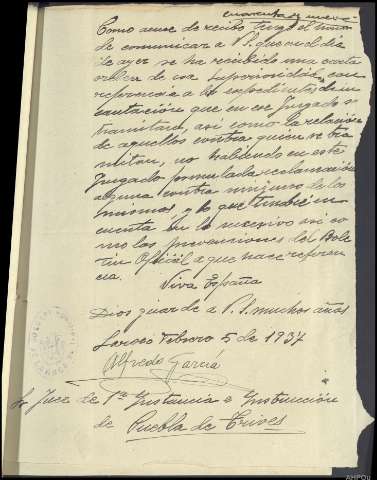 cuarenta y nueve
Como acuse de recibo tengo el honor
de comunicar a V.S. que en el dia
de ayer se ha recibido una carta
orden de esa Superioridad, con
referencia a los expedientes de in
cautación que en ese Juzgado se
tramitan, asi como la relación
de aquellos contra quien se tra
mitan, no habiendo en este
Juzgado formulada reclamación
alguna contra ninguno de los
mismos y lo que tendré en
cuenta en lo sucesivo asi co
mo las prevenciones del Bole
tin Oficial a que hace referen
cia.
Viva España
Dios guarde a V.S. muchos años
Laroco Febrero 5 de 1937
Alfredo García
Sr. Juez de 1ª Instancia e Instrucción
de Puebla de Trives
AHPOu